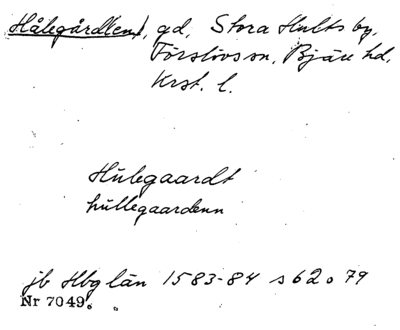 Hålegård(en), gd, Stora Hults by,
Förslövs sn, Bjäre hd,
Krst. l.
Hulegaardt
hullegaardenn
jb Hbg län 1583-84 s 62 o 79
Nr 7049.